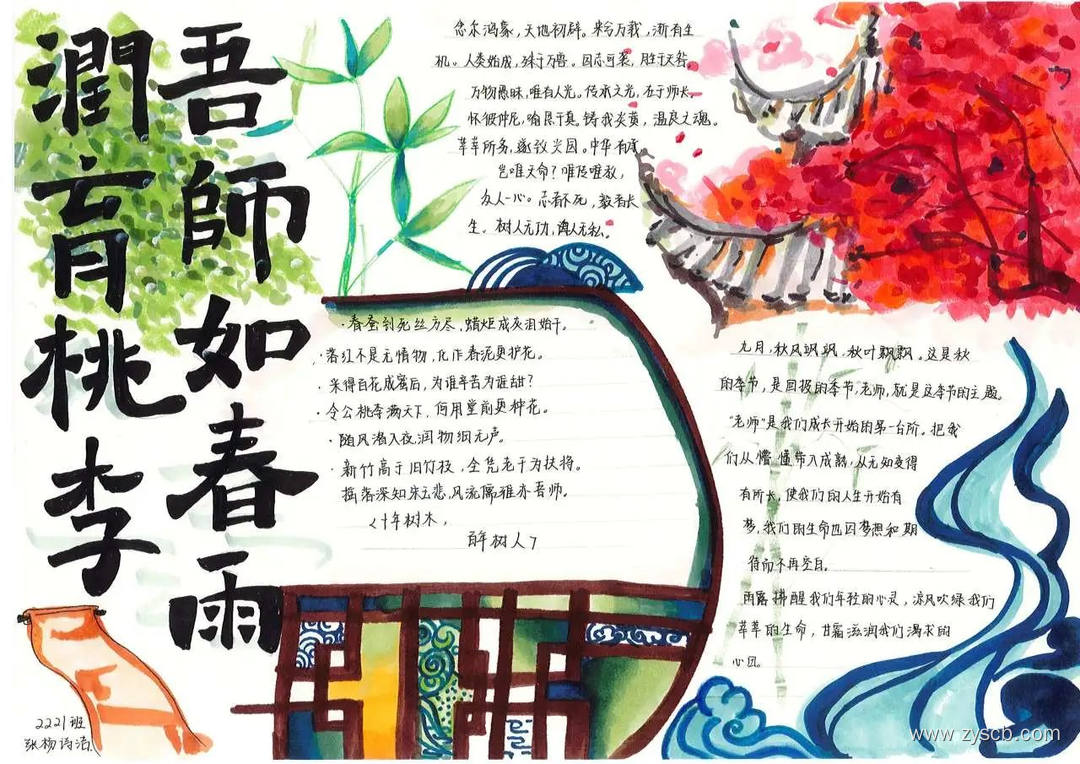 吾師如春雨
潤育桃李
鸿蒙，天地初辟。万载，渐有生
机。人类始成，殊于万兽。胜于天
万物愚昧，唯有人光。传承之光，在于师长。
怀彼仲尼，铸我炎黄，温良之魂。
莘莘所务，中华有
岂唯天命？
众人一心。忍者不死，教者长
生。树人无功，人无私。
·春蚕到死丝方尽，蜡炬成灰泪始干。
·落红不是无情物，化作春泥更护花。
·采得百花成蜜后，为谁辛苦为谁甜？
·令公桃李满天下，何用堂前更种花。
·随风潜入夜，润物细无声。
·新竹高于旧竹枝，全凭老干为扶持。
摇落深知宋玉悲，风流儒雅亦吾师。
<十年树木，
百年树人>
九月，秋风飒飒，秋叶飘飘。这是秋
的季节，是回报的季节，老师，就是这季节的主题。
"老师"是我们成长开始的第一台阶。把我
们从懵懂带入成熟，从无知变得
有所长，使我们的人生开始有
梦，我们的生命也因梦想和期
待而不再空白。
雨露拂醒我们年轻的心灵，凉风吹绿我们
莘莘的生命，甘霜滋润我们渴求的
心田。
2221班
张杨诗洁
www.zyscb.com